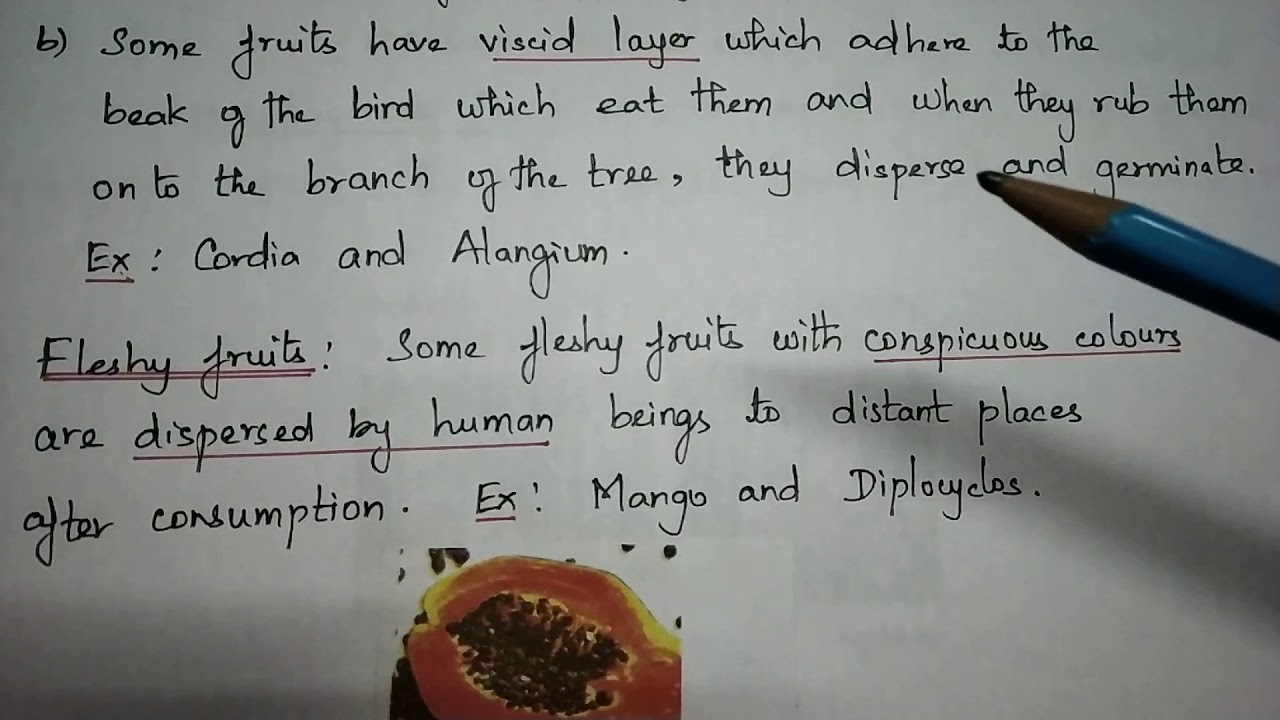 b) Some fruits have viscid layer which adhere to the
beak of the bird which eat them and when they rub them
on to the branch of the tree, they disperse and germinate.
Ex: Cordia and Alangium.
Fleshy fruits: Some fleshy fruits with conspicuous colours
are dispersed by human beings to distant places
after consumption. Ex: Mango and Diplocyclos.